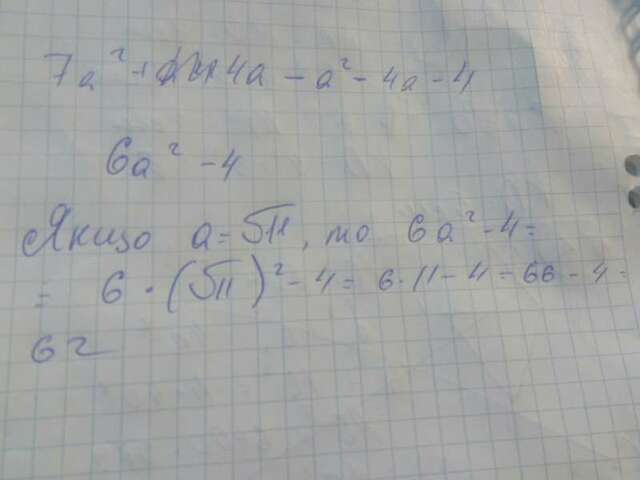 7a² + 4a - a² - 4a - 4
6a² - 4
Якщо a = √11, то 6a² - 4 =
= 6 · (√11)² - 4 = 6·11 - 4 = 66 - 4 =
62